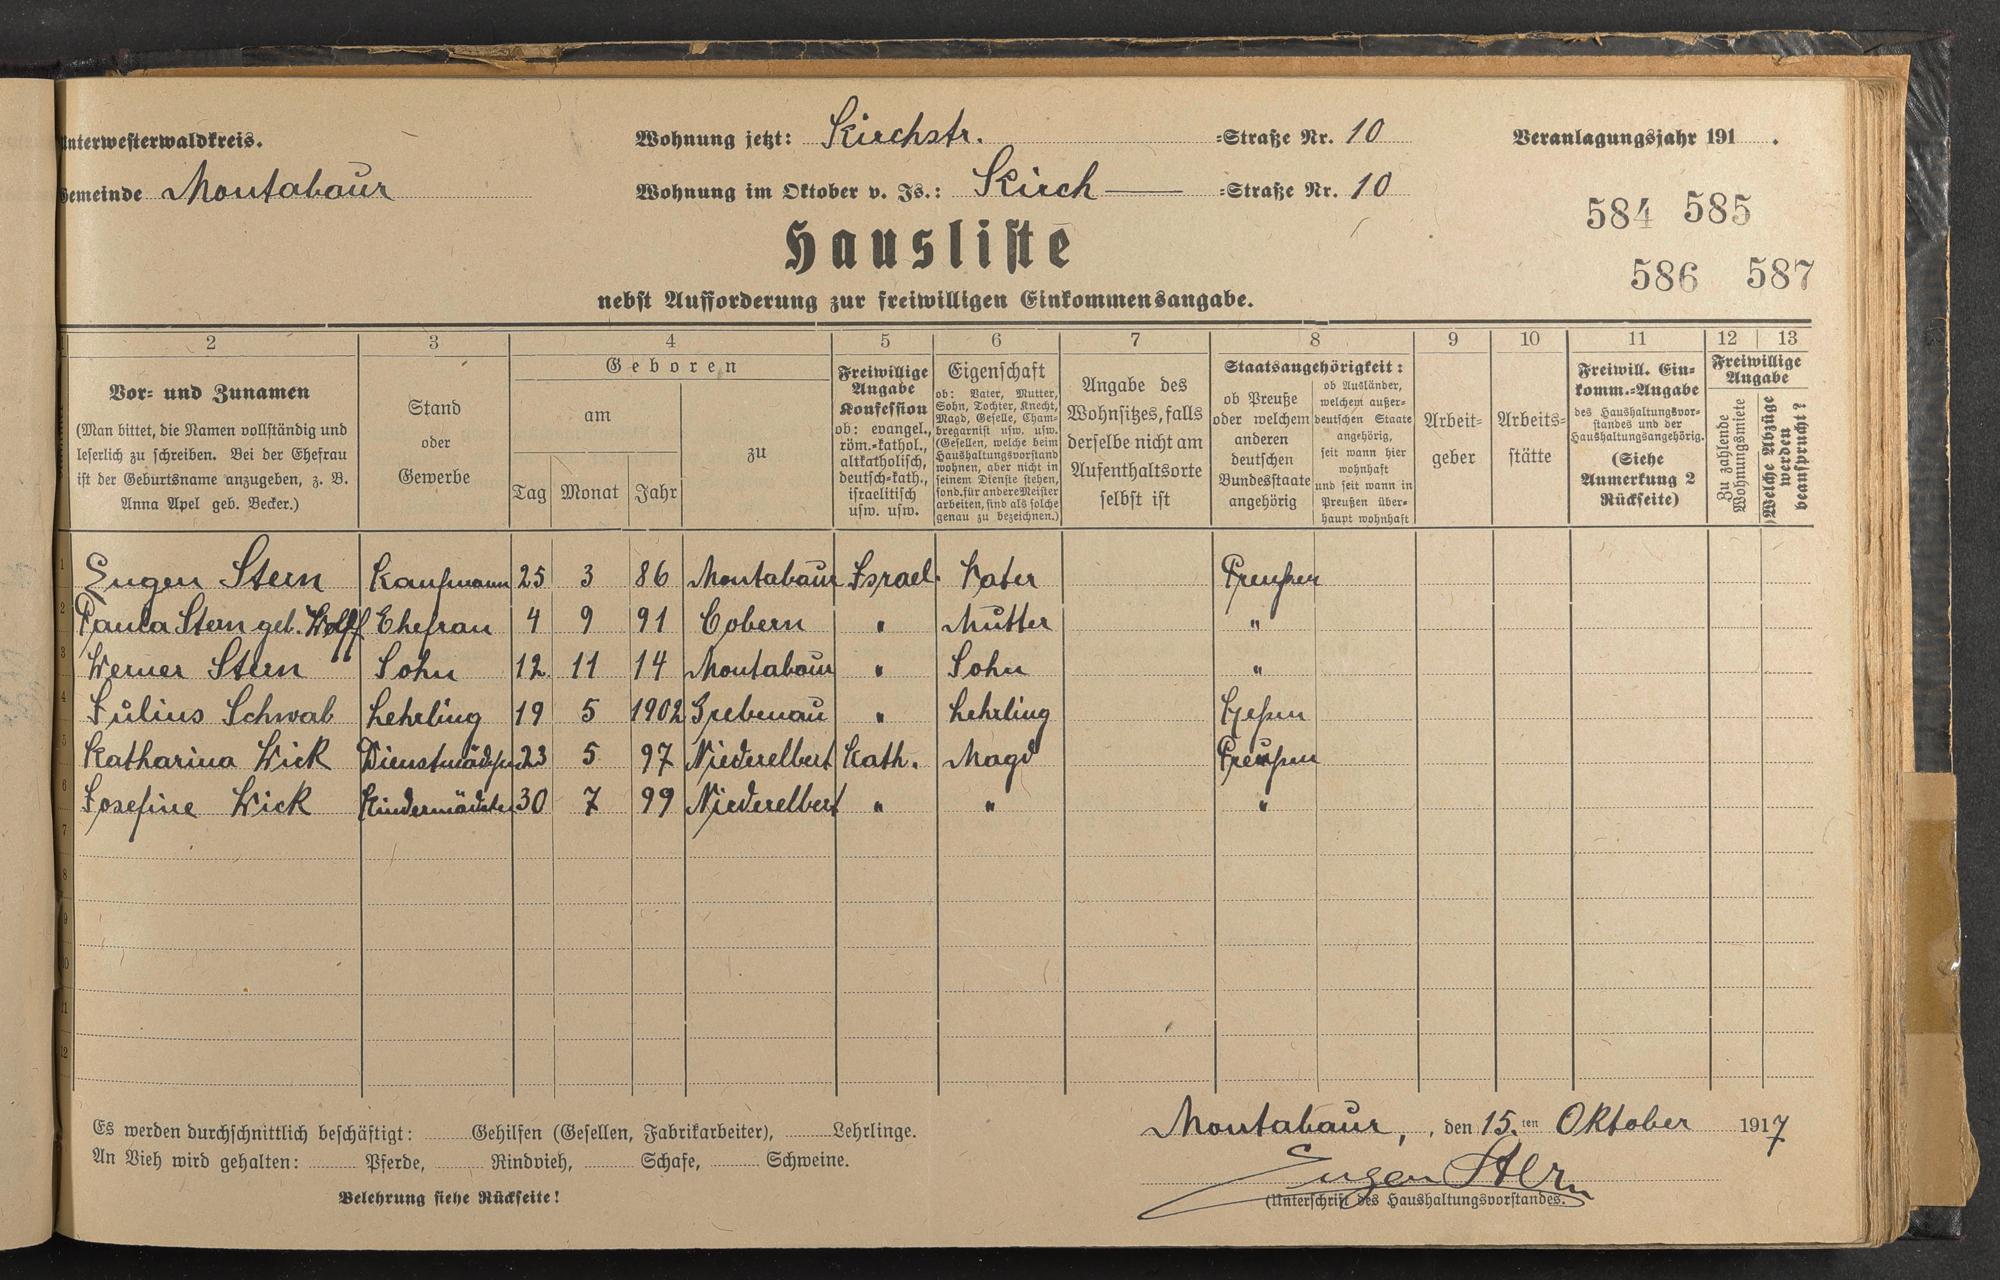 Unterwesterwaldkreis. Wohnung jetzt: Kirchstr. =Straße Nr. 10 Veranlagungsjahr 191 .
Gemeinde Montabaur Wohnung im Oktober v. Js.: Kirch— =Straße Nr. 10
584 585
586 587
Hausliste
nebst Aufforderung zur freiwilligen Einkommensangabe.
2 3 4 5 6 7 8 9 10 11 12 13
Vor- und Zunamen
(Man bittet, die Namen vollständig und
leserlich zu schreiben. Bei der Ehefrau
ist der Geburtsname anzugeben, z. B.
Anna Apel geb. Becker.)
Stand
oder
Gewerbe
Geboren
am
Tag Monat Jahr
zu
Freiwillige
Angabe
Konfession
ob: evangel.,
röm.-kathol.,
altkatholisch,
deutsch-kath.,
israelitisch
usw. usw.
Eigenschaft
ob: Vater, Mutter,
Sohn, Tochter, Knecht,
Magd, Geselle, Cham-
bregarnist usw. usw.
(Gesellen, welche beim
Haushaltungsvorstand
wohnen, aber nicht in
seinem Dienste stehen,
sond. für andere Meister
arbeiten, sind als solche
genau zu bezeichnen.)
Angabe des
Wohnsitzes, falls
derselbe nicht am
Aufenthaltsorte
selbst ist
Staatsangehörigkeit:
ob Preuße
oder welchem
anderen
deutschen
Bundesstaate
angehörig
ob Ausländer,
welchem außer-
deutschen Staate
angehörig,
seit wann hier
wohnhaft
und seit wann in
Preußen über-
haupt wohnhaft
Arbeit-
geber
Arbeits-
stätte
Freiwill. Ein-
komm.-Angabe
des Haushaltungsvor-
standes und der
Haushaltungsangehörig.
(Siehe
Anmerkung 2
Rückseite)
Freiwillige
Angabe
Zu zahlende
Wohnungsmiete
Welche Abzüge
werden
beansprucht?
1 Eugen Stern Kaufmann 25 3 86 Montabaur Israel. Vater Preußen
2 Paula Stern geb. Wolff Ehefrau 4 9 91 Cobern " Mutter "
3 Werner Stern Sohn 12. 11 14 Montabaur " Sohn "
4 Julius Schwab Lehrling 19 5 1902 Grebenau " Lehrling Hessen
5 Katharina Wick Dienstmädchen 23 5 97 Niederelbert Kath. Magd Preußen
6 Josefine Wick Kindermädchen 30 7 99 Niederelbert " " "
7
8
9
10
11
12
Es werden durchschnittlich beschäftigt: Gehilfen (Gesellen, Fabrikarbeiter), Lehrlinge.
An Vieh wird gehalten: Pferde, Rindvieh, Schafe, Schweine.
Belehrung siehe Rückseite!
Montabaur, , den 15. ten Oktober 1917
Eugen Stern
(Unterschrift des Haushaltungsvorstandes.